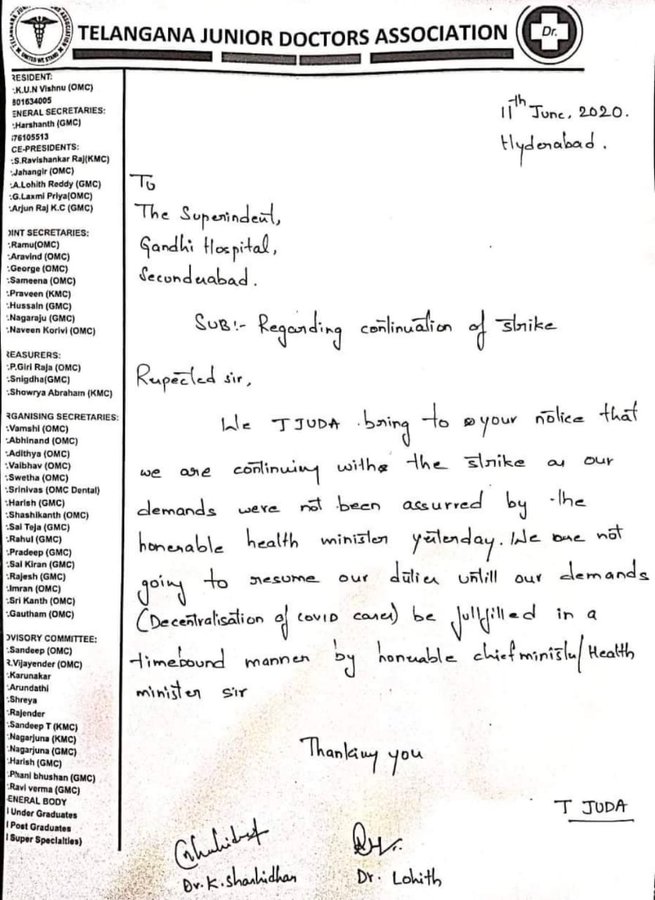 TELANGANA JUNIOR DOCTORS ASSOCIATION
Dr.
RESIDENT:
:.K.U.N Vishnu (OMC)
801634005
ENERAL SECRETARIES:
:Harshanth (GMC)
76105513
CE-PRESIDENTS:
:S.Ravishankar Raj(KMC)
:Jahangir (OMC)
:A.Lohith Reddy (GMC)
:G.Laxmi Priya(OMC)
:Arjun Raj K.C (GMC)
INT SECRETARIES:
:Ramu(OMC)
:Aravind (OMC)
:George (OMC)
:Sameena (OMC)
:Praveen (KMC)
:Hussain (GMC)
:Nagaraju (GMC)
:Naveen Korivi (OMC)
REASURERS:
:P.Giri Raja (OMC)
:Snigdha(GMC)
:Showrya Abraham (KMC)
RGANISING SECRETARIES:
:Vamshi (OMC)
:Abhinand (OMC)
:Adithya (OMC)
:Vaibhav (OMC)
:Swetha (OMC)
:Srinivas (OMC Dental)
:Harish (GMC)
:Shashikanth (OMC)
:Sai Teja (GMC)
:Rahul (GMC)
:Pradeep (GMC)
:Sai Kiran (GMC)
:Rajesh (GMC)
:Imran (OMC)
:Sri Kanth (OMC)
:Gautham (OMC)
DVISORY COMMITTEE:
:Sandeep (OMC)
R.Vijayender (OMC)
:Karunakar
:Arundathi
:Shreya
:Rajender
:Sandeep T (KMC)
:Nagarjuna (KMC)
:Nagarjuna (GMC)
:Harish (GMC)
:Phani bhushan (GMC)
:Ravi verma (GMC)
ENERAL BODY
l Under Graduates
l Post Graduates
l Super Specialties)
11th June, 2020.
Hyderabad.
To
The Superindent,
Gandhi Hospital,
Secunderabad.
SUB:- Regarding continuation of strike
Rupected sir,
We TJUDA bring to your notice that
we are continuing with the strike as our
demands were not been assurred by the
honerable health minister yesterday. We are not
going to resume our duties untill our demands
(Decentralisation of COVID cases) be fullfilled in a
timebound manner by honuable chiefminister/Health
minister sir
Thanking you
T JUDA
Dr. K. Shashidhar
Dr. Lohith